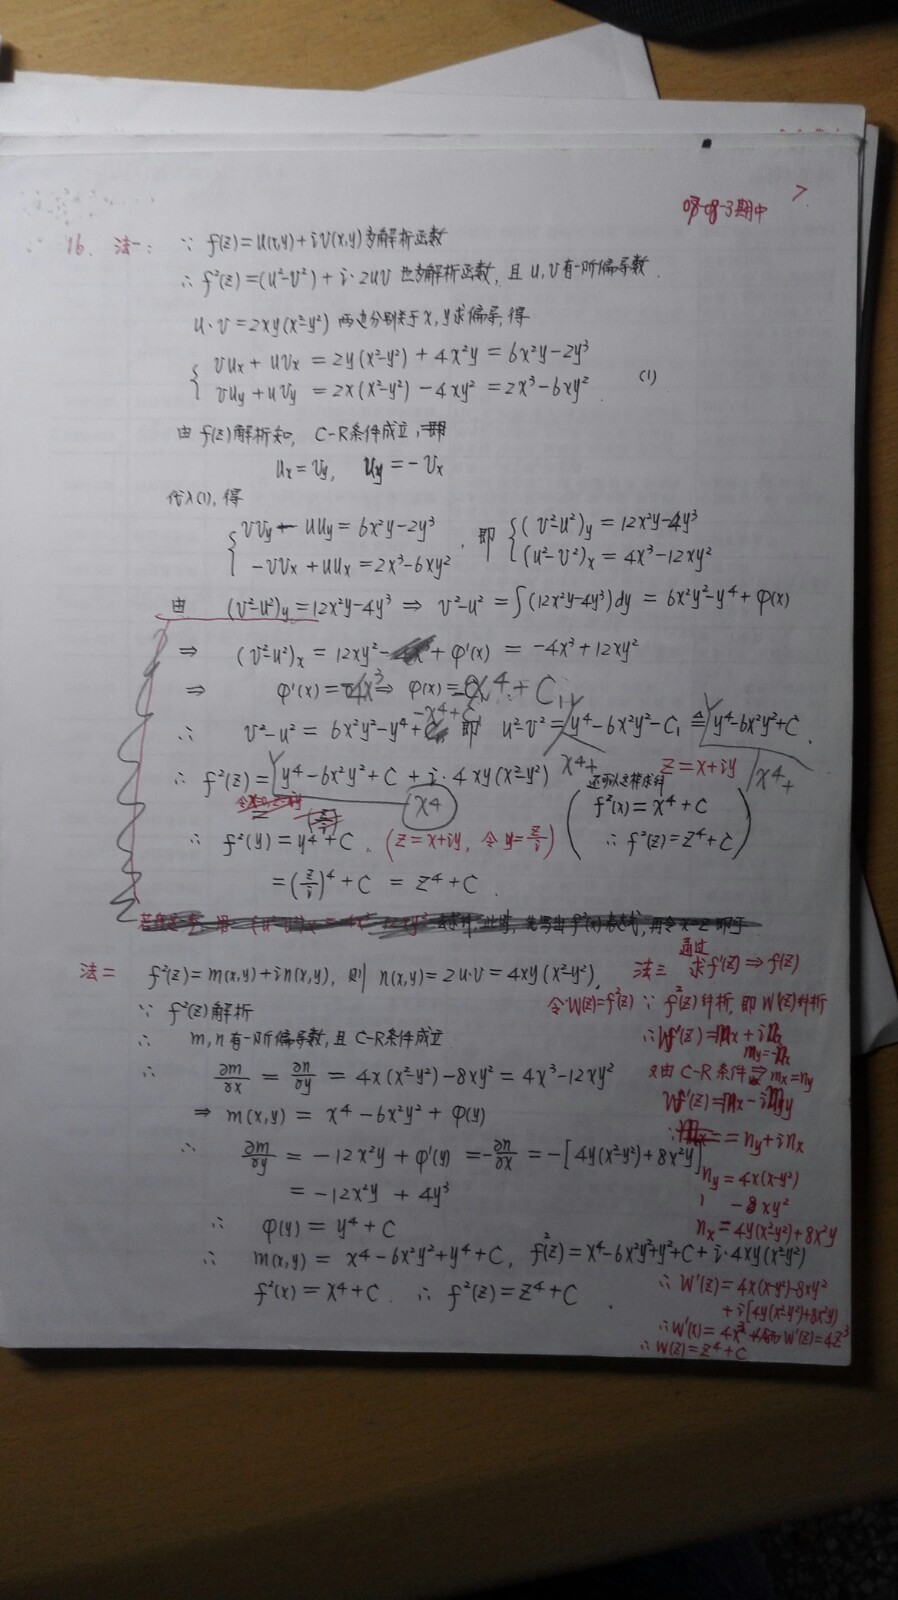 08-09-3期中
16. 法一: ∵ f(z)=u(x,y)+iv(x,y)为解析函数
∴ f²(z)=(u²-v²)+i·2uv 也为解析函数, 且 u,v有一阶偏导数.
u·v=2xy(x²-y²) 两边分别关于x,y求偏导,得
{ vux+uvx = 2y(x²-y²)+4x²y = 6x²y-2y³
vuy+uvy = 2x(x²-y²)-4xy² = 2x³-6xy² (1)
由 f(z)解析知, C-R条件成立, 即
ux=vy, uy=-vx
代入(1),得
{ vvy-uuy = 6x²y-2y³ , 即 { (v²-u²)y = 12x²y-4y³
-vvx+uux = 2x³-6xy² (u²-v²)x = 4x³-12xy²
由 (v²-u²)y=12x²y-4y³ ⇒ v²-u²=∫(12x²y-4y³)dy = 6x²y²-y⁴+φ(x)
⇒ (v²-u²)x = 12xy²+φ'(x) = -4x³+12xy²
⇒ φ'(x)=-4x³ ⇒ φ(x)=-x⁴+C₁
-x⁴+C₁
∴ v²-u² = 6x²y²-y⁴+ 即 u²-v²=y⁴-6x²y²-C₁ ≜ y⁴-6x²y²+C.
x⁴+ x⁴+
∴ f²(z)=y⁴-6x²y²+C+i·4xy(x²-y²) z=x+iy
x⁴
还可以这样求解
( f²(x)=x⁴+C
∴ f²(z)=z⁴+C )
∴ f²(y)=y⁴+C. (z=x+iy, 令y=z/i)
=(z/i)⁴+C = z⁴+C.
法二 f²(z)=m(x,y)+in(x,y), 则 n(x,y)=2u·v=4xy(x²-y²),
∵ f²(z)解析
∴ m,n有一阶偏导数, 且 C-R条件成立
∴ ∂m/∂x = ∂n/∂y = 4x(x²-y²)-8xy² = 4x³-12xy²
⇒ m(x,y) = x⁴-6x²y²+φ(y)
∴ ∂m/∂y = -12x²y+φ'(y) = -∂n/∂x = -[4y(x²-y²)+8x²y]
= -12x²y+4y³
∴ φ(y)=y⁴+C
∴ m(x,y) = x⁴-6x²y²+y⁴+C, f²(z)=x⁴-6x²y²+y²+C+i·4xy(x²-y²)
f²(x)=x⁴+C. ∴ f²(z)=z⁴+C.
法三 通过求f'(z)⇒f(z)
令W(z)=f²(z) ∵ f²(z)解析, 即W(z)解析
∴ W'(z)=mx+inx
my=-nx
又由 C-R条件 mx=ny
W'(z)=mx-imy
=ny+inx
ny=4x(x²-y²)
-8xy²
nx=4y(x²-y²)+8x²y
∴ W'(z)=4x(x²-y²)-8xy²
+i[4y(x²-y²)+8x²y]
∴ W'(x)=4x³ W'(z)=4z³
∴ W(z)=z⁴+C